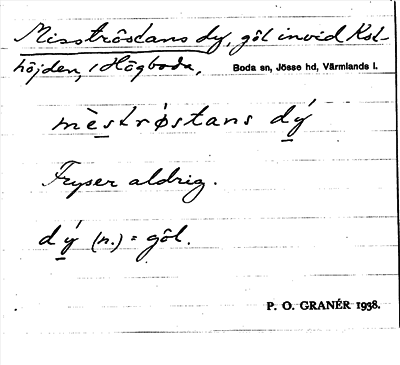 Misströstans dy, göl invid Kol-
höjden, i Högboda, Boda sn, Jösse hd, Värmlands l.
mèstrøstans dý
Fryser aldrig.
dý (n.) = göl.
P. O. GRANÉR 1938.